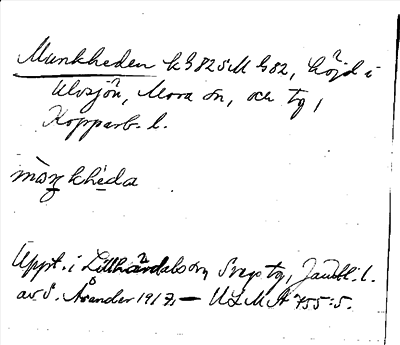 Munkheden k382 SM h82, höjd i
Ulvsjön, Mora sn, och tg,
Kopparb. l.
mòŋkhèda
Uppt. i Lillhärdals sn Svegs tg, Jämtl. l.
av S. Åsander 1917. – ULMA 755:5.